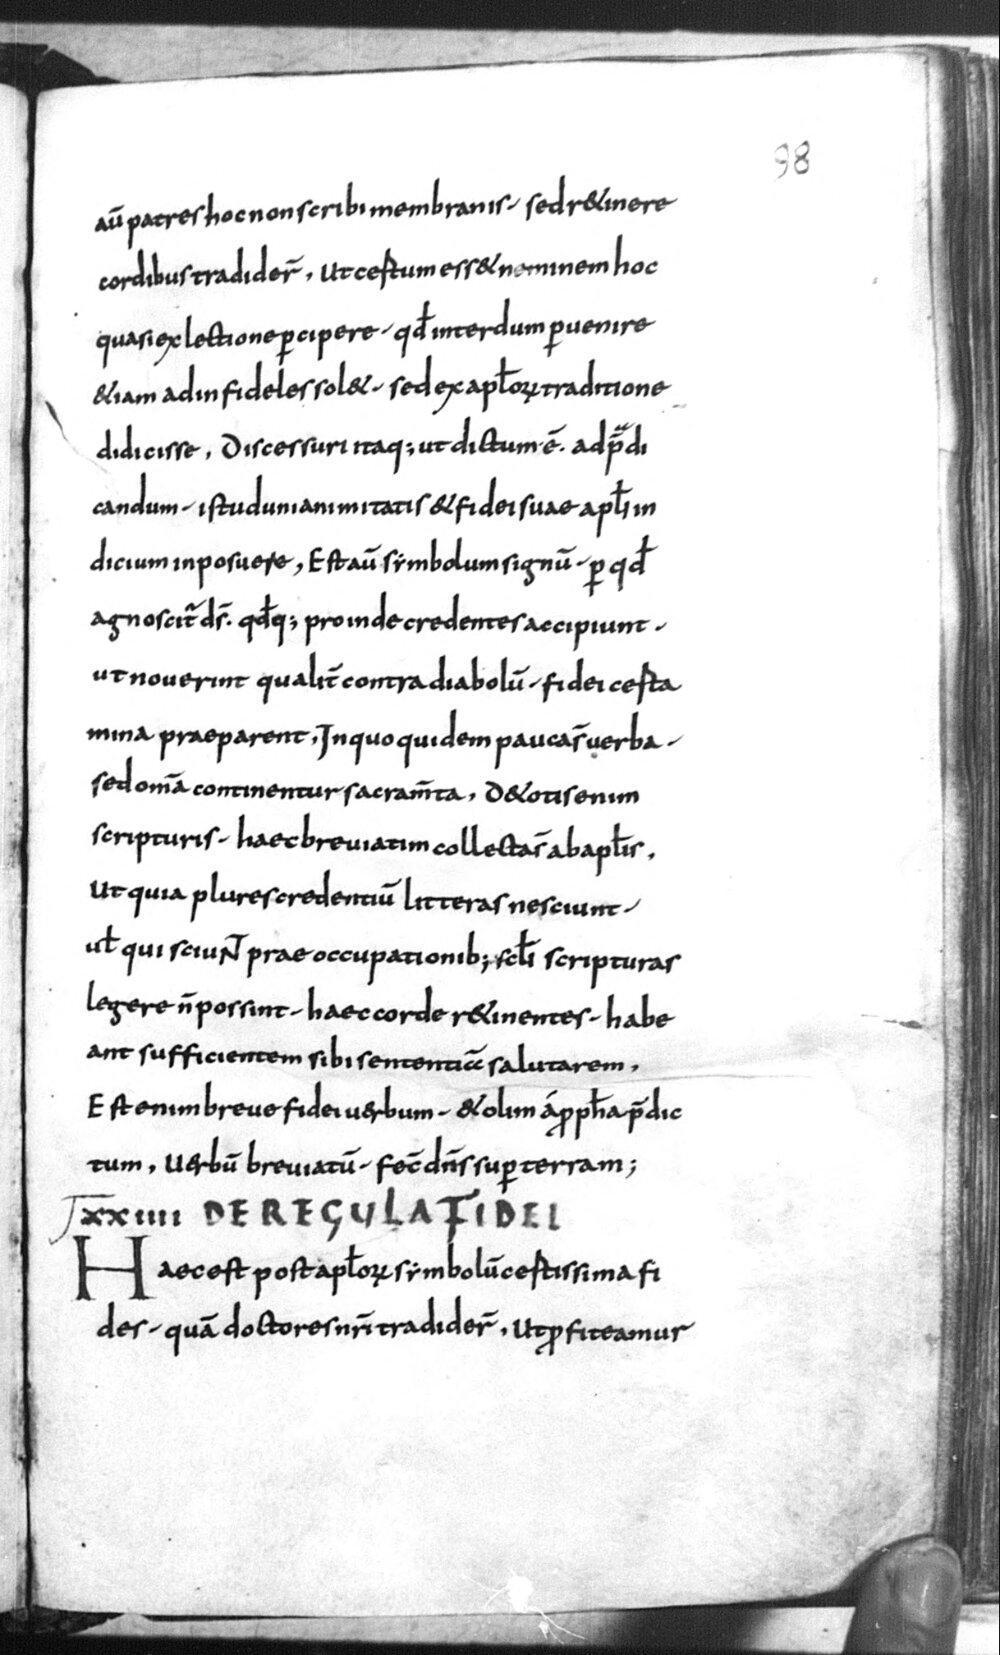 98
aū patres hoc non scribi membranis sed r&inere
cordibus tradider̄, ut cestum ess& neminem hoc
quasi ex lectione ꝑcipere qđ interdum ꝑuenire
&iam ad infideles sol& sed ex apƚoꝝ traditione
didicisse, Discessuri itaq; ut dictum ē. ad p̄di
candum istud unianimitatis & fidei suae apƚi in
dicium inposuere, Est aū sẏmbolum signū ꝑ qđ
agnoscit̄ ds̄. qđq; proinde credentes accipiunt
ut noverint qualit̄ contra diabolū fidei cesta
mina praeparent, In quo quidem pauca s̄ uerba
sed om̄a continentur sacram̄ta, D& otis enim
scripturis haec breviatim collecta s̄ ab apƚis,
ut quia plures credentiū litteras nesciunt
uƚ qui sciuNT prae occupationib; scƚi scripturas
legere n̄ possint haec corde r&inentes habe
ant sufficientem sibi sententiā salutarem,
Est enim breve fidei uerbum & olim á ꝓpħa p̄dic
tum, Uerbū breviatū fec̄ dn̄s suꝑ terram;
LXXIIII DE REGULA FIDEI
Haec est post apƚoꝝ sẏmbolū cestissima fi
des quā doctores nr̄i tradider̄, Ut ꝓfiteamur